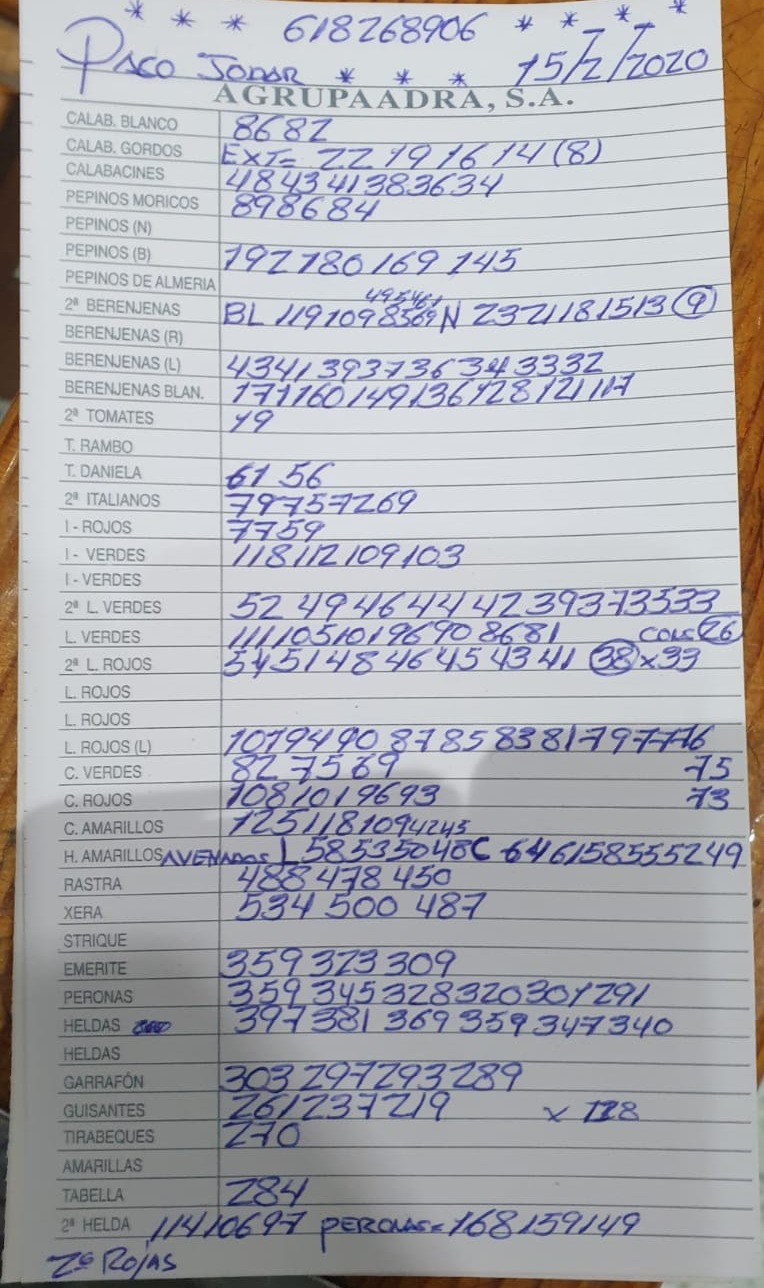 * * * 618268906 * * * *
PACO JODAR * * * 15/2/2020
AGRUPAADRA, S.A.
CALAB. BLANCO 8682
CALAB. GORDOS EXT= 22 19 16 14 (8)
CALABACINES 484341383634
PEPINOS MORICOS 898684
PEPINOS (N)
PEPINOS (B) 192 180 169 145
PEPINOS DE ALMERIA
2ª BERENJENAS BL 1191098569 N 2321181513 (9)
BERENJENAS (R)
BERENJENAS (L) 434139373634 3332
BERENJENAS BLAN. 171160149136128121117
2ª TOMATES 49
T. RAMBO
T. DANIELA 61 56
2ª ITALIANOS 79757269
I - ROJOS 7759
I - VERDES 118112109103
I - VERDES
2ª L. VERDES 52 49 46 44 42 39373533
L. VERDES 11110510196908681 COLS (26)
2ª L. ROJOS 5451484645434341 (38) x 33
L. ROJOS
L. ROJOS
L. ROJOS (L) 1079490 8785838179 7776
C. VERDES 827569 75
C. ROJOS 1081019693 73
C. AMARILLOS 1251181094245
H. AMARILLOS AVENADOS L 58535048C 646158555249
RASTRA 488 478 450
XERA 534 500 487
STRIQUE
EMERITE 359 323 309
PERONAS 359 345328320301291
HELDAS 397381 369 359 347340
HELDAS
GARRAFÓN 303 297293289
GUISANTES 261237219 x 128
TIRABEQUES 270
AMARILLAS
TABELLA 284
2ª HELDA 11410697 PERONAS= 168159149
2ª ROJAS